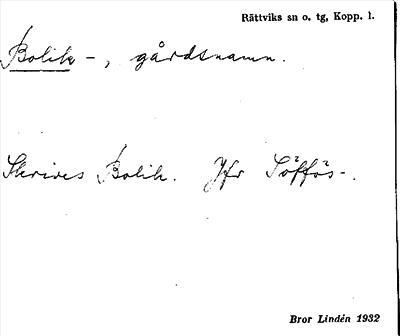 Rättviks sn o. tg, Kopp. l.
Bolik-, gårdsnamn.
Skrives Bolik. Jfr Söffös-.
Bror Lindén 1932